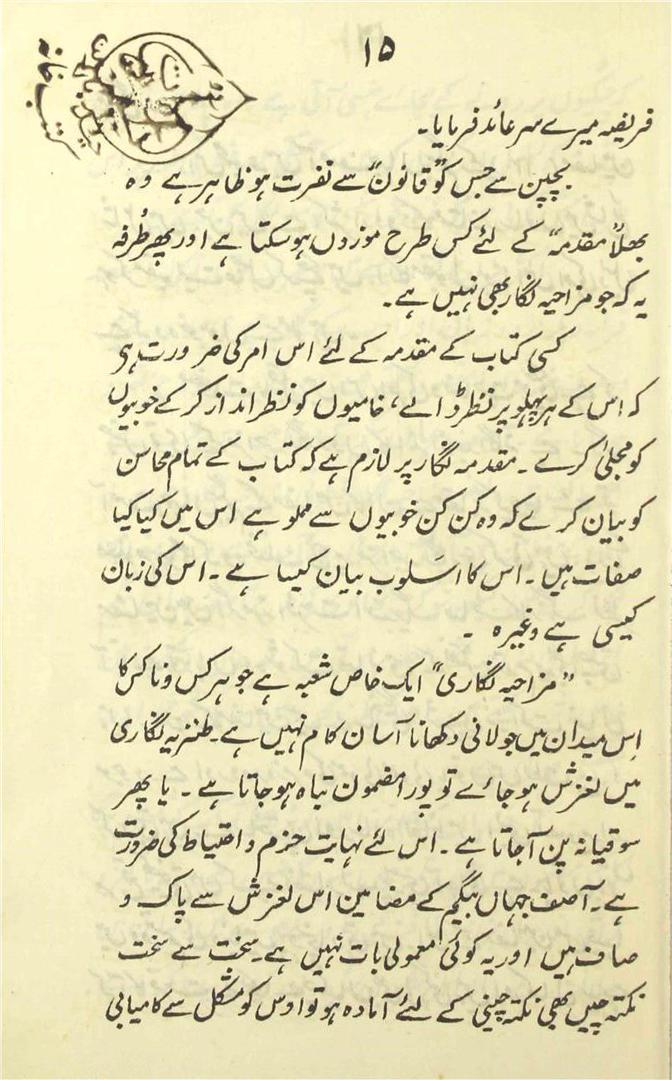 ۱۵
فریضہ میرے سر عائد فرمایا۔
بچپن سے جس کو "قانون" سے نفرت ہو ظاہر ہے وہ
بھلا "مقدمہ" کے لئے کس طرح موزوں ہو سکتا ہے اور پھر طُرفہ
یہ کہ جو مزاحیہ نگار بھی نہیں ہے۔
کسی کتاب کے مقدمہ کے لئے اس امر کی ضرورت ہی
کہ اس کے ہر پہلو پر نظر ڈالے، خامیوں کو نظر انداز کر کے خوبیوں
کو مجلیٰ کرے۔ مقدمہ نگار پر لازم ہے کہ کتاب کے تمام محاسن
کو بیان کرے کہ وہ کن کن خوبیوں سے مملو ہے اس میں کیا کیا
صفات ہیں۔ اس کا اسَلوب بیان کیسا ہے۔ اس کی زبان
کیسی ہے وغیرہ ۔
"مزاحیہ نگاری" ایک خاص شعبہ ہے جو ہر کس و ناکس کا
اِس میدان میں جولانی دکھانا آسان کام نہیں ہے۔ طنزیہ نگاری
میں لغزش ہو جائے تو پورا مضمون تباہ ہو جاتا ہے ۔ یا پھر
سوقیانہ پن آجاتا ہے۔ اس لئے نہایت حزم و احتیاط کی ضرورت
ہے۔ آصف جہاں بیگم کے مضامین اس لغزش سے پاک و
صاف ہیں اور یہ کوئی معمولی بات نہیں ہے۔ سخت سے سخت
نکتہ چیں بھی نکتہ چینی کے لئے آمادہ ہو تو اوس کو مشکل سے کامیابی